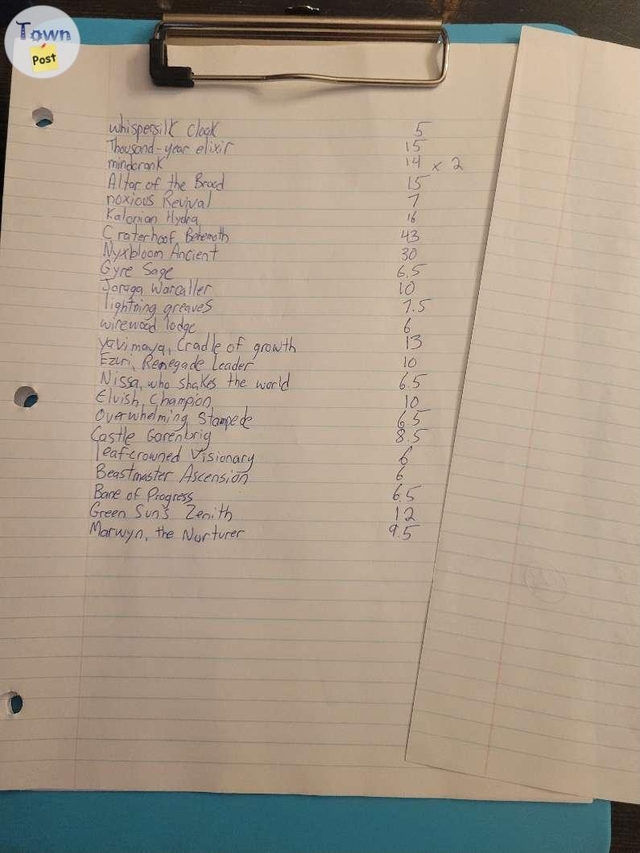 Town
Post
whispersilk cloak 5
Thousand-year elixir 15
mindcrank 14 x 2
Altar of the Brood 15
noxious Revival 7
Kalonian Hydra 16
Craterhoof Behemoth 43
Nyxbloom Ancient 30
Gyre Sage 6.5
Joraga Warcaller 10
lightning greaves 7.5
wirewood lodge 6
yavimaya, Cradle of growth 13
Ezuri, Renegade Leader 10
Nissa, who shakes the world 6.5
Elvish Champion 10
Overwhelming Stampede 6.5
Castle Garenbrig 8.5
leaf-crowned Visionary 6
Beastmaster Ascension 6
Bane of Progress 6.5
Green Sun's Zenith 12
Marwyn, the Nurturer 9.5